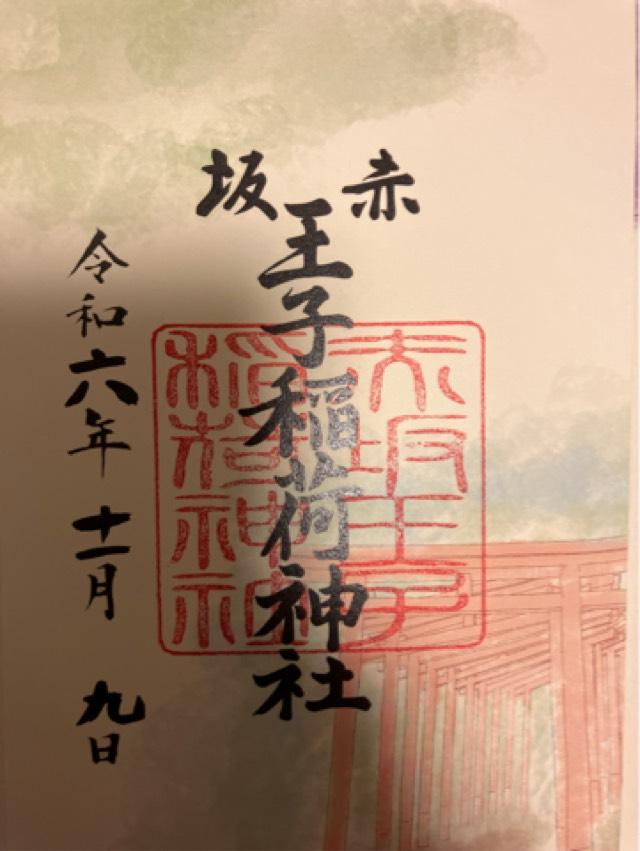 赤坂
王子稲荷神社
赤坂王子
稲荷神社
令和六年十一月九日